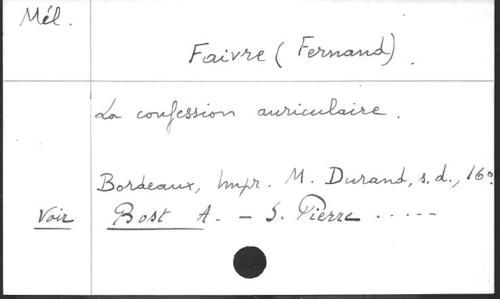 Mél.
Faivre (Fernand).
La confession auriculaire.
Bordeaux, Impr. M. Durand, s.d., 16º
Voir Bost A. – S. Pierre .....